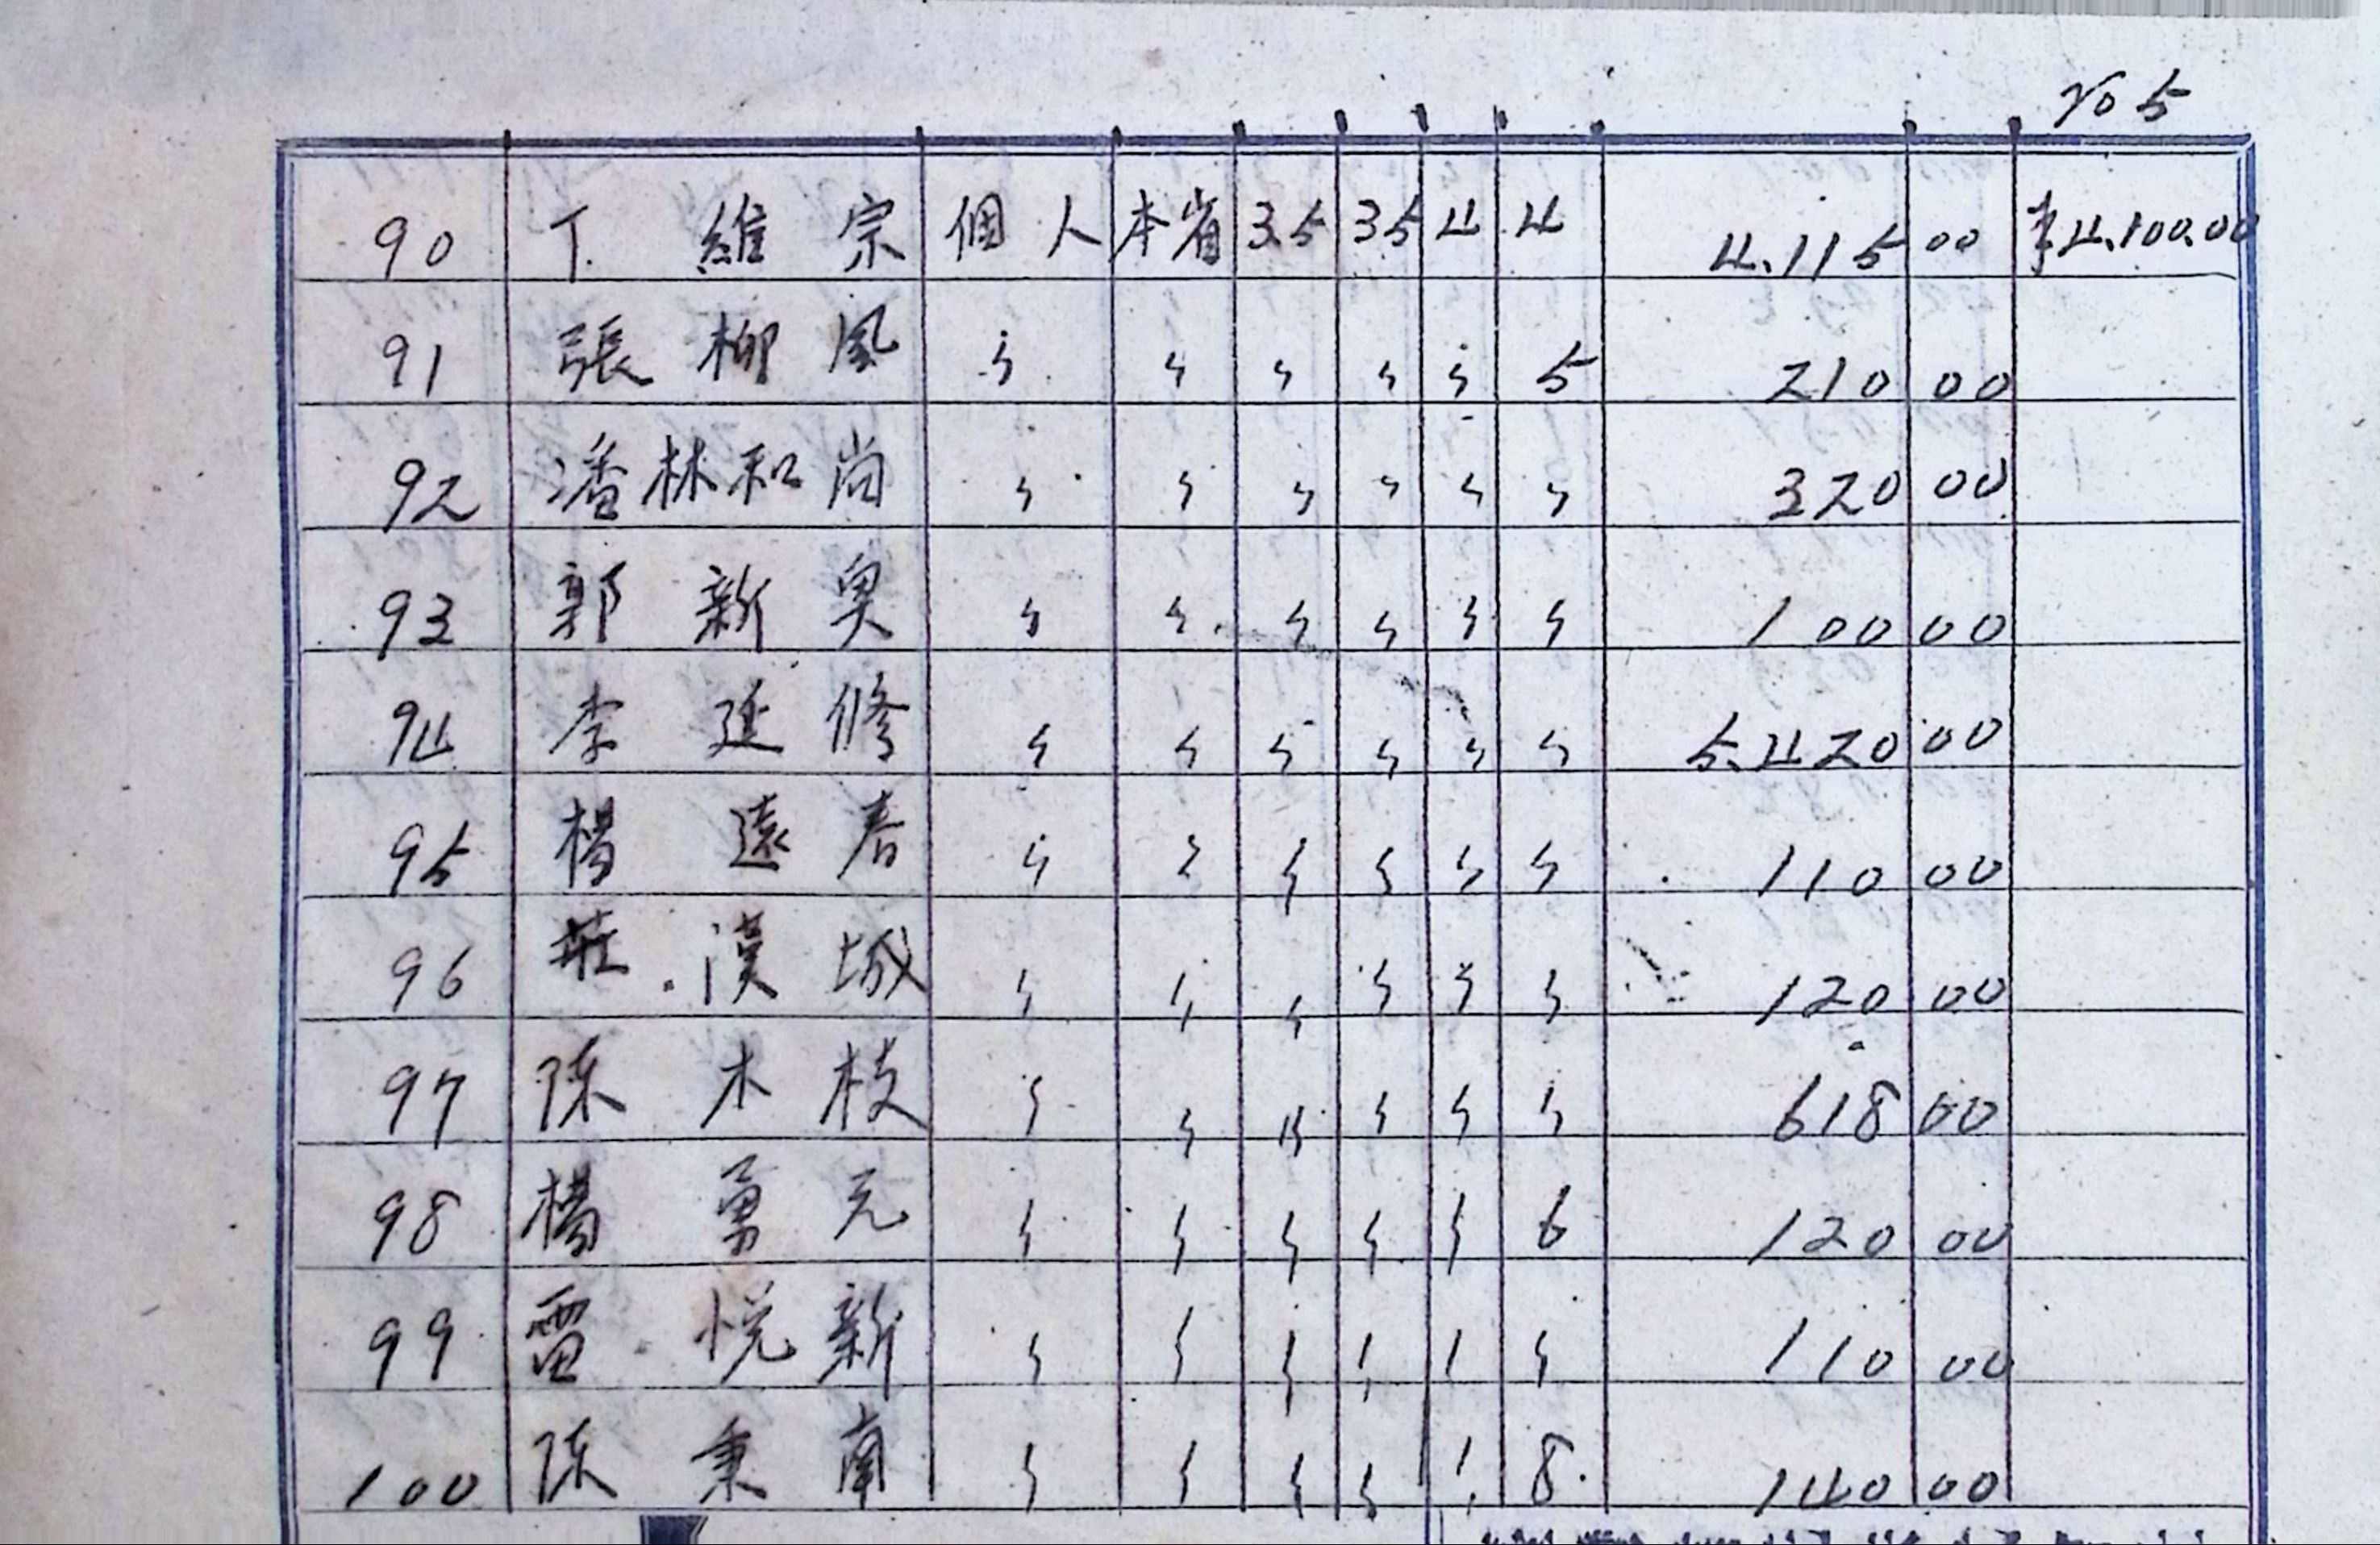 No 5
90 丁維宗 個人 本省 35 35 4 4 4.115 00 4.100.00
91 張柳風 〃 〃 〃 〃 〃 5 210 00
92 潘林和尚 〃 〃 〃 〃 〃 〃 320 00
93 郭新 〃 〃 〃 〃 〃 〃 100 00
94 李延修 〃 〃 〃 〃 〃 〃 5.420 00
95 楊遠春 〃 〃 〃 〃 〃 〃 110 00
96 莊漢城 〃 〃 〃 〃 〃 〃 120 00
97 陳木枝 〃 〃 〃 〃 〃 〃 618 00
98 楊勇元 〃 〃 〃 〃 〃 6 120 00
99 雷悅新 〃 〃 〃 〃 〃 〃 110 00
100 陳秉南 〃 〃 〃 〃 〃 8 140 00